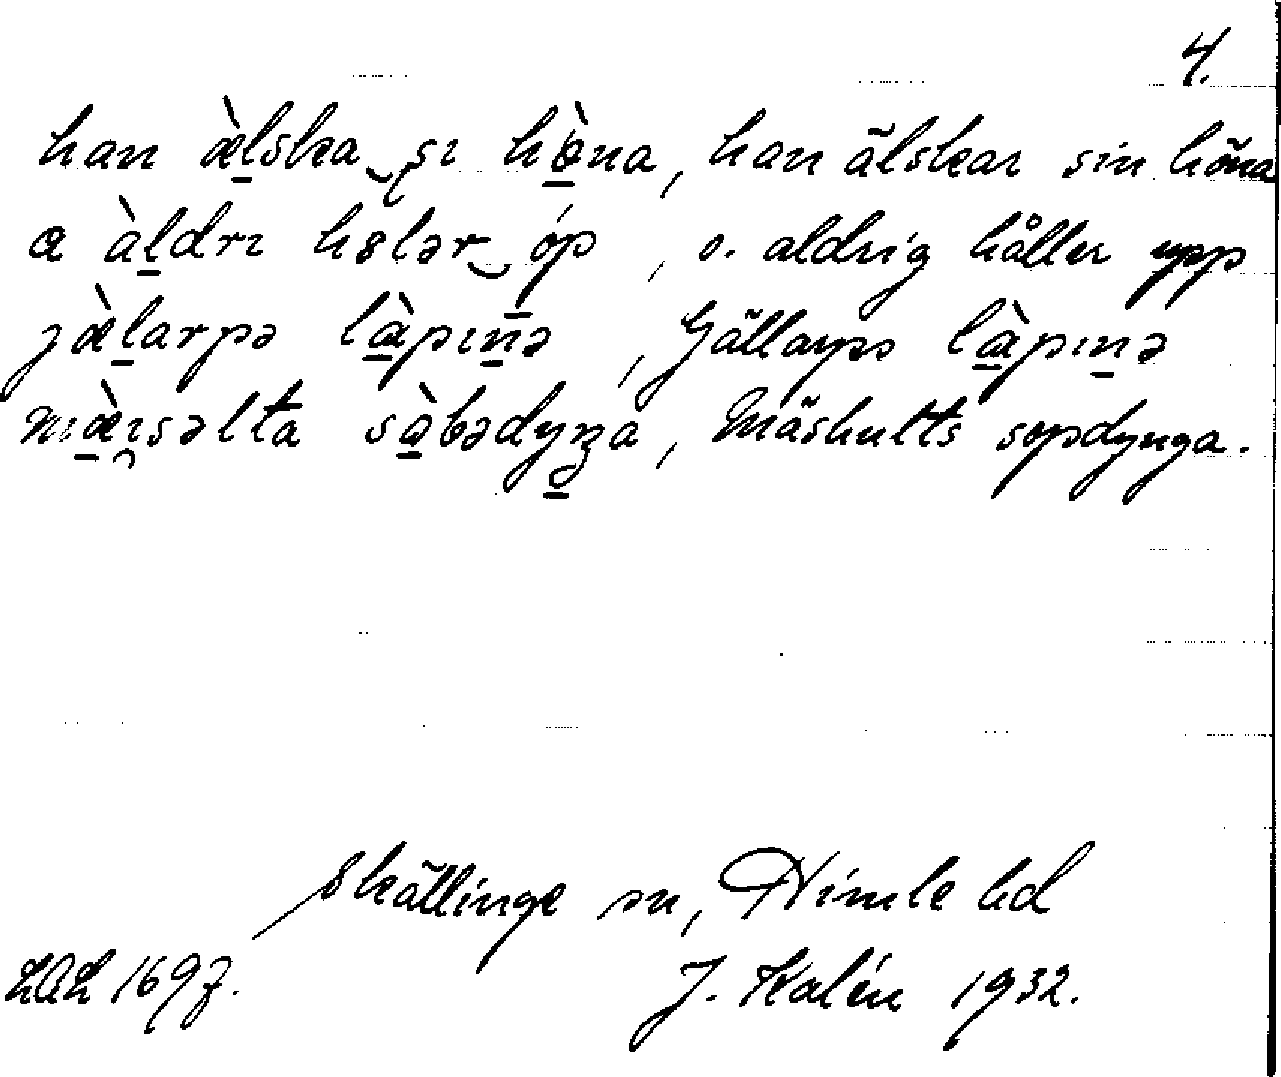 4.
han æ̀l̠ska‿sı hɵ̠̀na, han älskar sin höna
a àl̠drı hɞlər‿óp, o. aldrig håller upp
jæ̀l̠arpə læ̠̀pın̠ə, Gällarps læ̠̀pın̠ə
mæ̠̀ısəlta sɑ̠̀bədyŋa, Mäshults sopdynga.
Skällinge sn, Himle hd
LAL 1697. J. Kalén 1932.